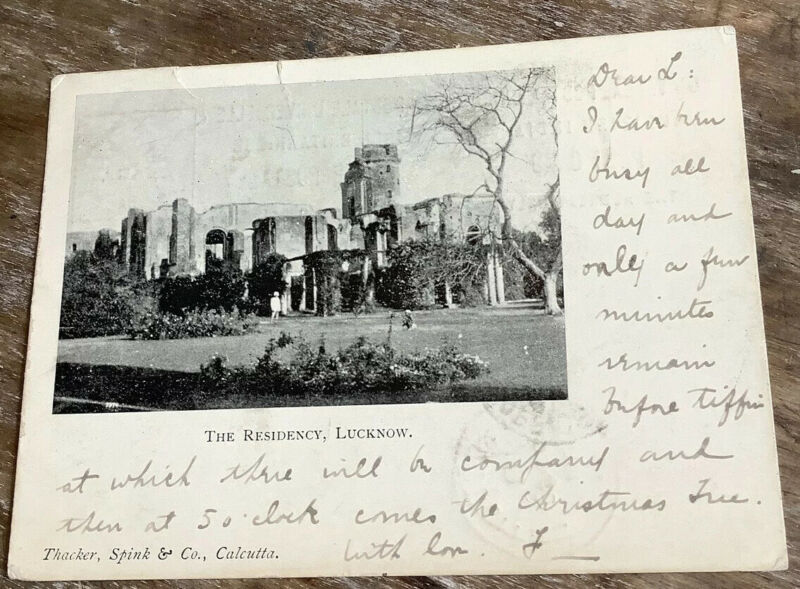 Dear L:
I have been
busy all
day and
only a few
minutes
remain
before tiffin
THE RESIDENCY, LUCKNOW.
at which there will be company and
then at 5 o'clock comes the Christmas Tree.
With love. F
Thacker, Spink & Co., Calcutta.